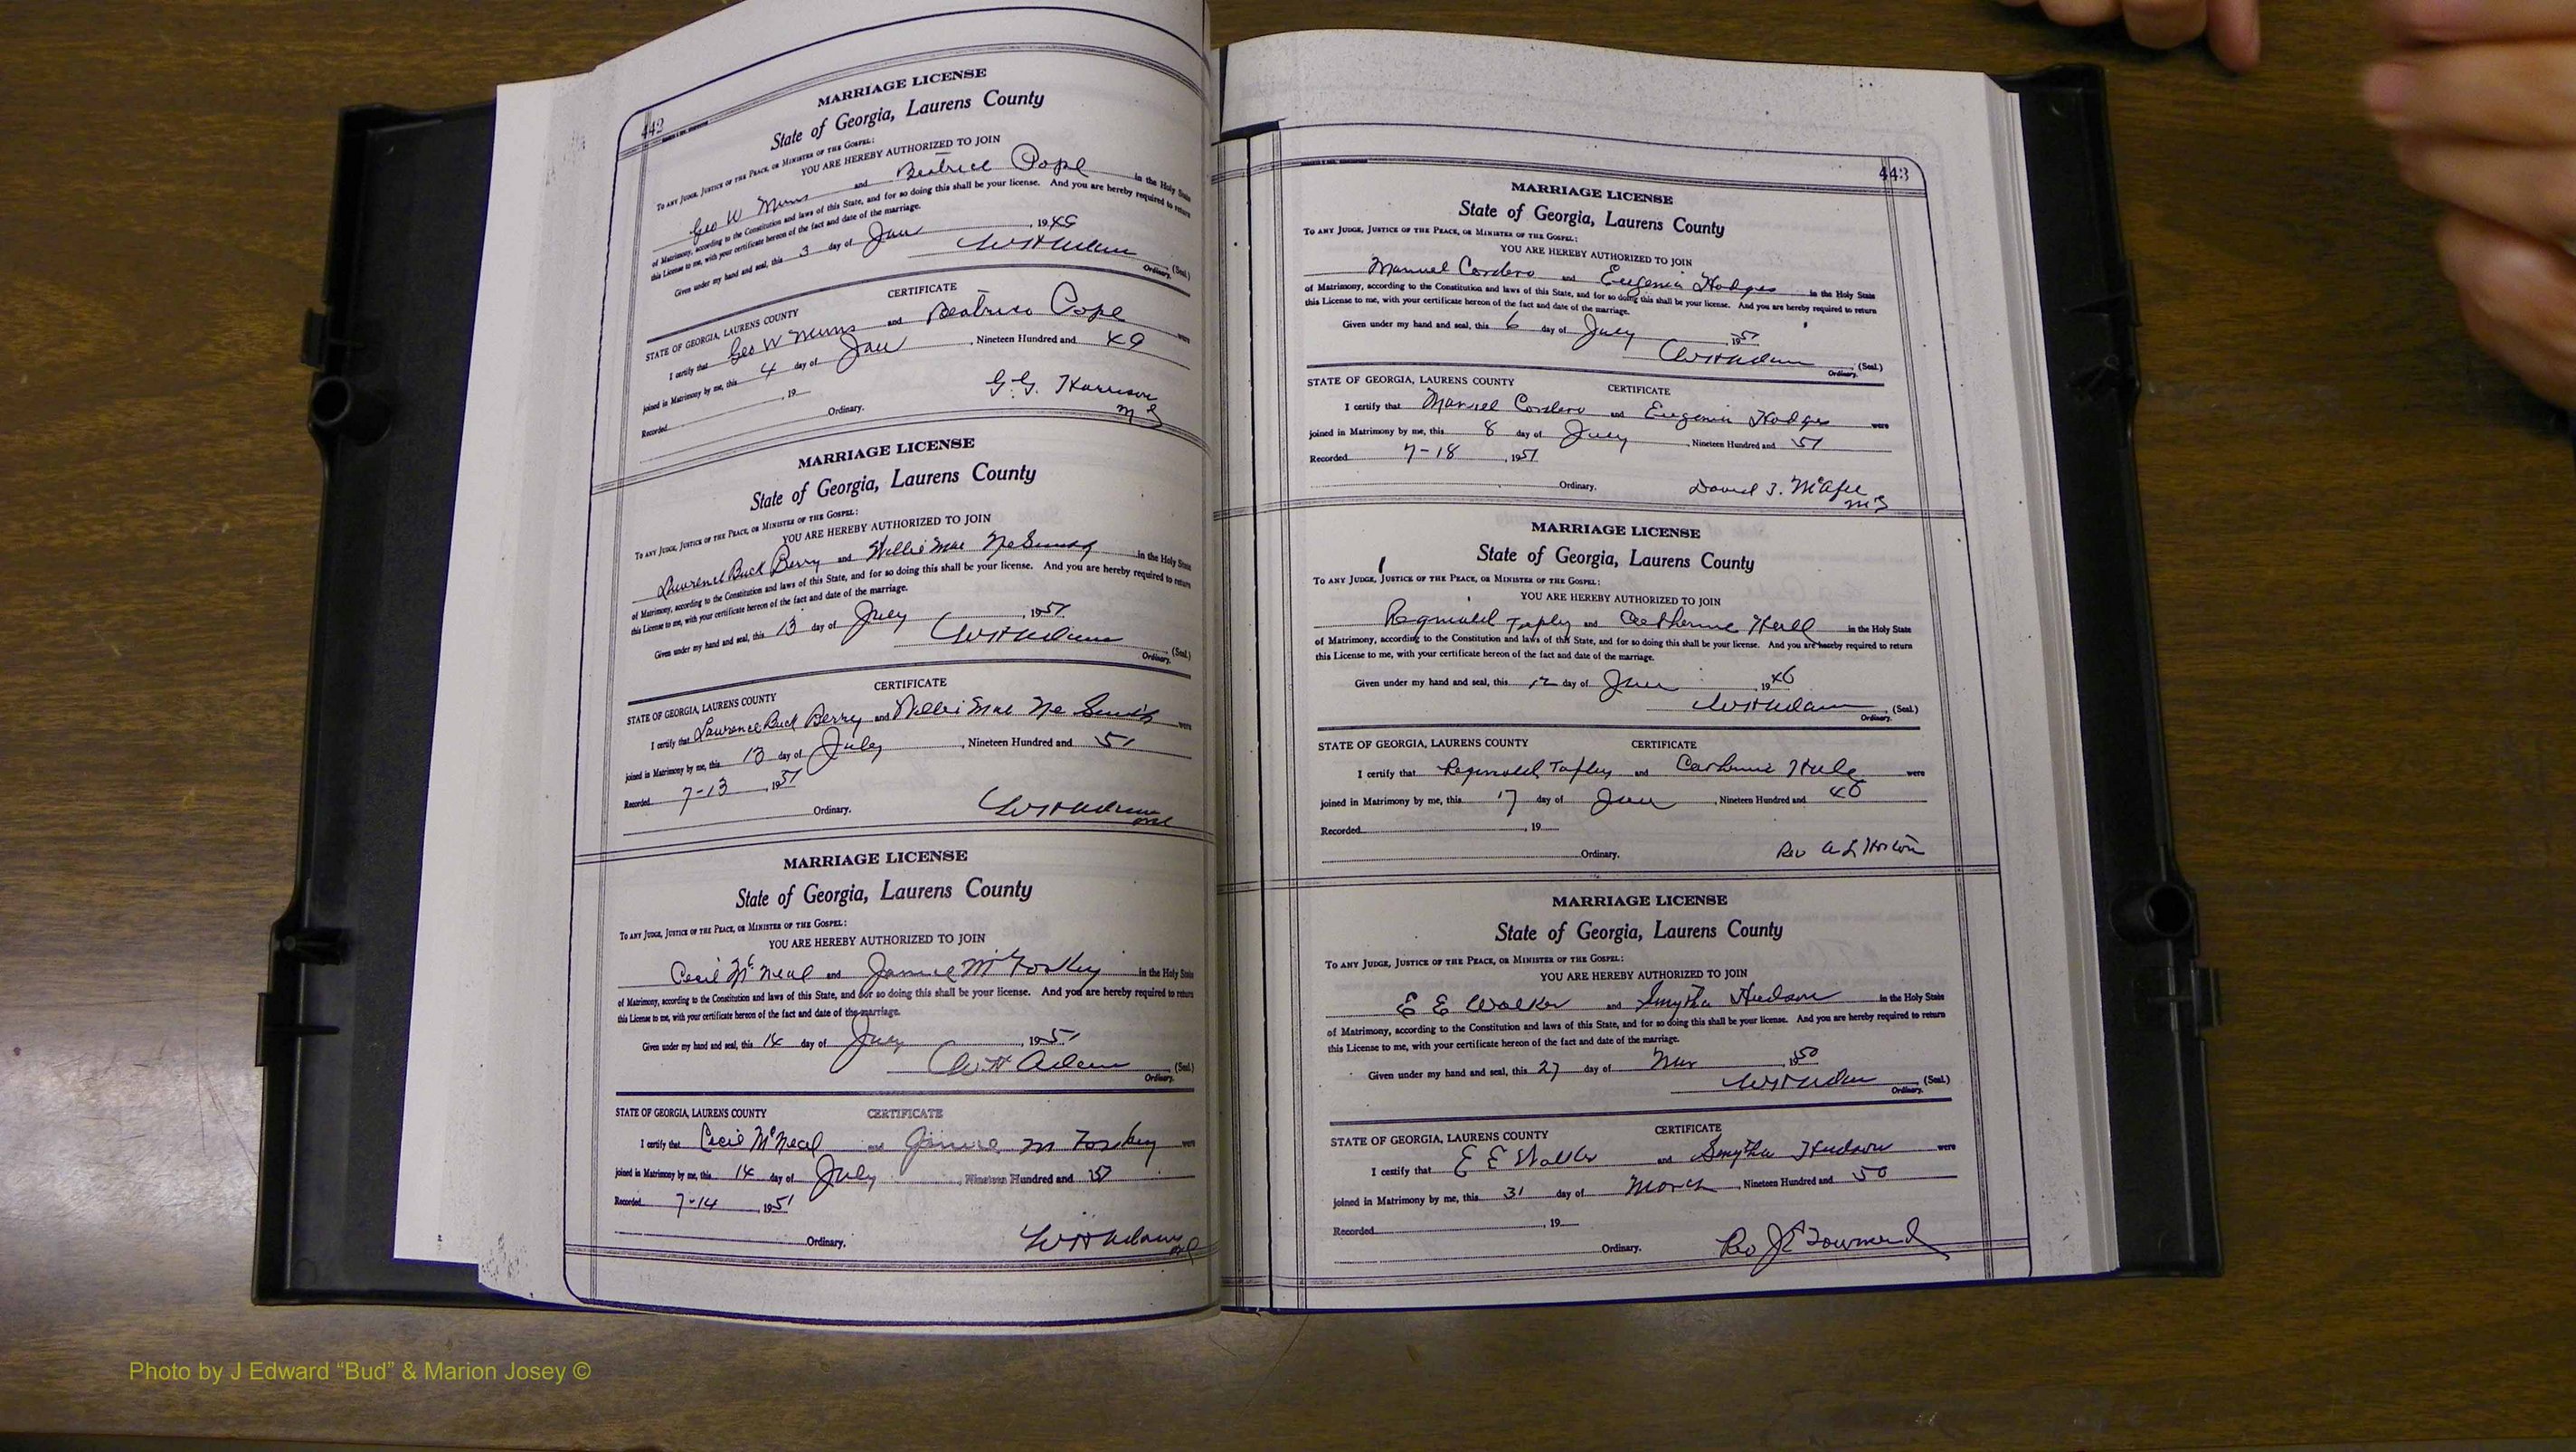 442
MARRIAGE LICENSE
State of Georgia, Laurens County
TO ANY JUDGE, JUSTICE OF THE PEACE, OR MINISTER OF THE GOSPEL:
YOU ARE HEREBY AUTHORIZED TO JOIN
Geo W Mims and Beatrice Pope in the Holy State
of Matrimony, according to the Constitution and laws of this State, and for so doing this shall be your license. And you are hereby required to return
this License to me, with your certificate hereon of the fact and date of the marriage.
Given under my hand and seal, this 3 day of Jan, 1949
W H Adams (Seal.)
Ordinary.
CERTIFICATE
STATE OF GEORGIA, LAURENS COUNTY
I certify that Geo W Mims and Beatrice Pope were
joined in Matrimony by me, this 4 day of Jan, Nineteen Hundred and 49
Recorded , 19
G. G. Harrison
Ordinary.
MARRIAGE LICENSE
State of Georgia, Laurens County
TO ANY JUDGE, JUSTICE OF THE PEACE, OR MINISTER OF THE GOSPEL:
YOU ARE HEREBY AUTHORIZED TO JOIN
Lawrence Buck Berry and Willie Mae NeSmith in the Holy State
of Matrimony, according to the Constitution and laws of this State, and for so doing this shall be your license. And you are hereby required to return
this License to me, with your certificate hereon of the fact and date of the marriage.
Given under my hand and seal, this 13 day of July, 1951
W H Adams (Seal.)
Ordinary.
CERTIFICATE
STATE OF GEORGIA, LAURENS COUNTY
I certify that Lawrence Buck Berry and Willie Mae Ne Smith were
joined in Matrimony by me, this 13 day of July, Nineteen Hundred and 51
Recorded 7-13, 1951
Ordinary. W H Adams
MARRIAGE LICENSE
State of Georgia, Laurens County
TO ANY JUDGE, JUSTICE OF THE PEACE, OR MINISTER OF THE GOSPEL:
YOU ARE HEREBY AUTHORIZED TO JOIN
Cecil McNeal and Janice in the Holy State
of Matrimony, according to the Constitution and laws of this State, and for so doing this shall be your license. And you are hereby required to return
this License to me, with your certificate hereon of the fact and date of the marriage.
Given under my hand and seal, this 14 day of July, 1951
W H Adams (Seal.)
Ordinary.
STATE OF GEORGIA, LAURENS COUNTY CERTIFICATE
I certify that Cecil McNeal and Janice were
joined in Matrimony by me, this 14 day of July, Nineteen Hundred and 51
Recorded 7-14, 1951
Ordinary. W H Adams
443
MARRIAGE LICENSE
State of Georgia, Laurens County
TO ANY JUDGE, JUSTICE OF THE PEACE, OR MINISTER OF THE GOSPEL:
YOU ARE HEREBY AUTHORIZED TO JOIN
Manuel Cordero and Eugenia Hodges in the Holy State
of Matrimony, according to the Constitution and laws of this State, and for so doing this shall be your license. And you are hereby required to return
this License to me, with your certificate hereon of the fact and date of the marriage.
Given under my hand and seal, this 6 day of July, 1951
W H Adams (Seal.)
Ordinary.
STATE OF GEORGIA, LAURENS COUNTY CERTIFICATE
I certify that Manuel Cordero and Eugenia Hodges were
joined in Matrimony by me, this 8 day of July, Nineteen Hundred and 51
Recorded 7-18, 1951
Ordinary. David J. McAfee
MARRIAGE LICENSE
State of Georgia, Laurens County
TO ANY JUDGE, JUSTICE OF THE PEACE, OR MINISTER OF THE GOSPEL:
YOU ARE HEREBY AUTHORIZED TO JOIN
Reginald Tapley and Catherine Hall in the Holy State
of Matrimony, according to the Constitution and laws of this State, and for so doing this shall be your license. And you are hereby required to return
this License to me, with your certificate hereon of the fact and date of the marriage.
Given under my hand and seal, this 12 day of Jan, 1946
W H Adams (Seal.)
Ordinary.
STATE OF GEORGIA, LAURENS COUNTY CERTIFICATE
I certify that Reginald Tapley and Catherine were
joined in Matrimony by me, this 17 day of Jan, Nineteen Hundred and
Recorded , 19
Ordinary. Rev A L Horton
MARRIAGE LICENSE
State of Georgia, Laurens County
TO ANY JUDGE, JUSTICE OF THE PEACE, OR MINISTER OF THE GOSPEL:
YOU ARE HEREBY AUTHORIZED TO JOIN
E E Walker and Smytha Hudson in the Holy State
of Matrimony, according to the Constitution and laws of this State, and for so doing this shall be your license. And you are hereby required to return
this License to me, with your certificate hereon of the fact and date of the marriage.
Given under my hand and seal, this 27 day of Mar, 1950
W H Adams (Seal.)
Ordinary.
STATE OF GEORGIA, LAURENS COUNTY CERTIFICATE
I certify that E E Walker and Smytha Hudson were
joined in Matrimony by me, this 31 day of March, Nineteen Hundred and 50
Recorded , 19
Ordinary. Rev J E Townsend
Photo by J Edward “Bud” & Marion Josey ©